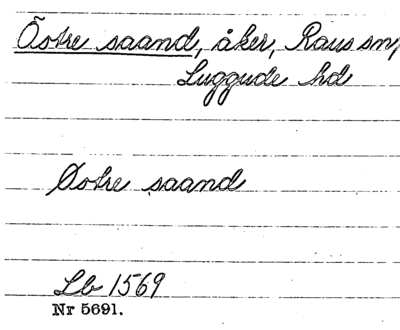 Östre saand, åker, Raus sn,
Luggude hd
Østre saand
Lb 1569
Nr 5691.